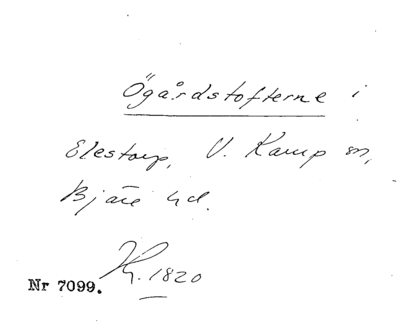 Ögårdstofterne i
Elestorp, V. Karup sn,
Bjäre hd.
Kr. 1820
Nr 7099.